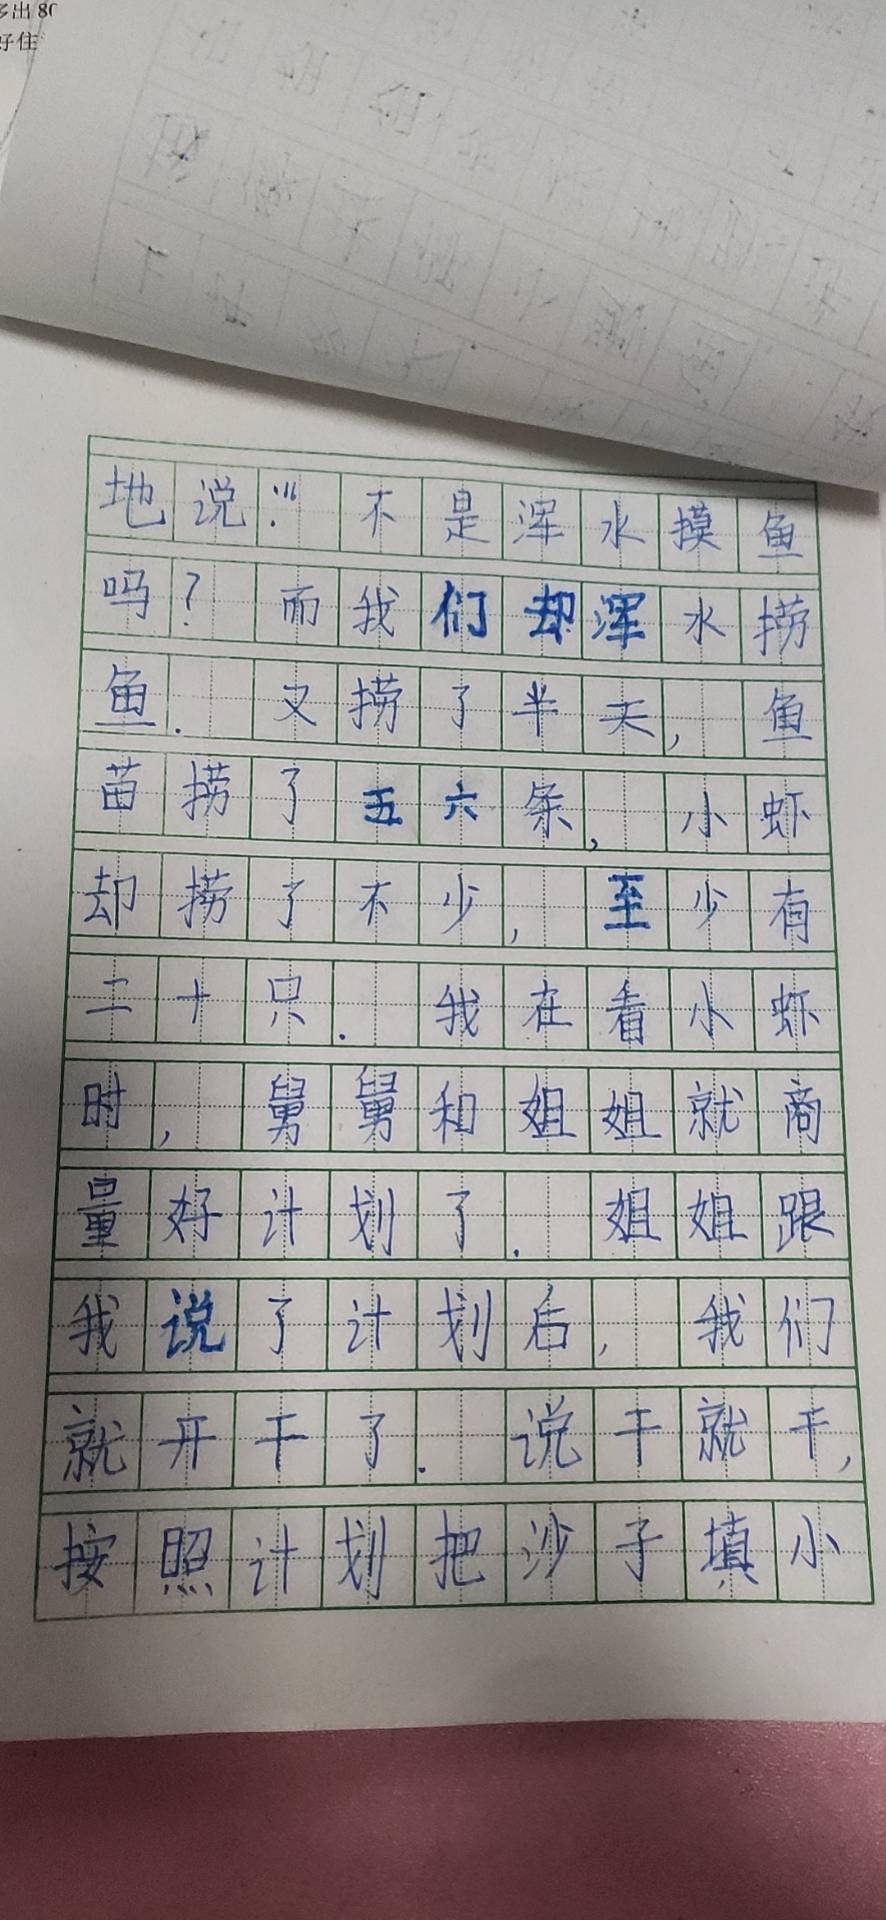 出80
好住
地说："不是浑水摸鱼
吗？而我们却浑水捞
鱼.又捞了半天,鱼
苗捞了五六条,小虾
却捞了不少,至少有
二十只.我在看小虾
时,舅舅和姐姐就商
量好计划了.姐姐跟
我说了计划后,我们
就开干了.说干就干,
按照计划把沙子填小